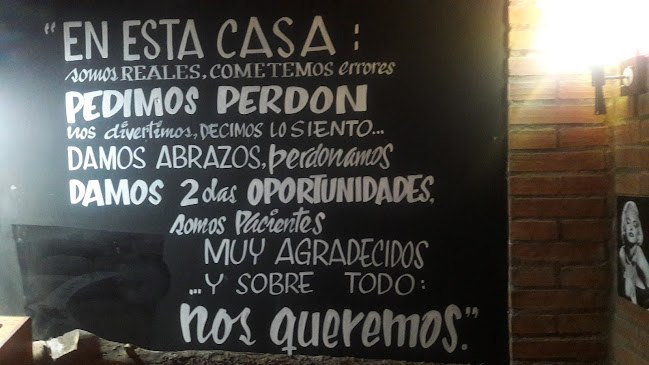 "EN ESTA CASA:
somos REALES, COMETEMOS errores
PEDIMOS PERDON
nos divertimos, DECIMOS LO SIENTO...
DAMOS ABRAZOS, perdonamos
DAMOS 2das OPORTUNIDADES,
somos Pacientes
MUY AGRADECIDOS
...Y SOBRE TODO:
nos queremos."